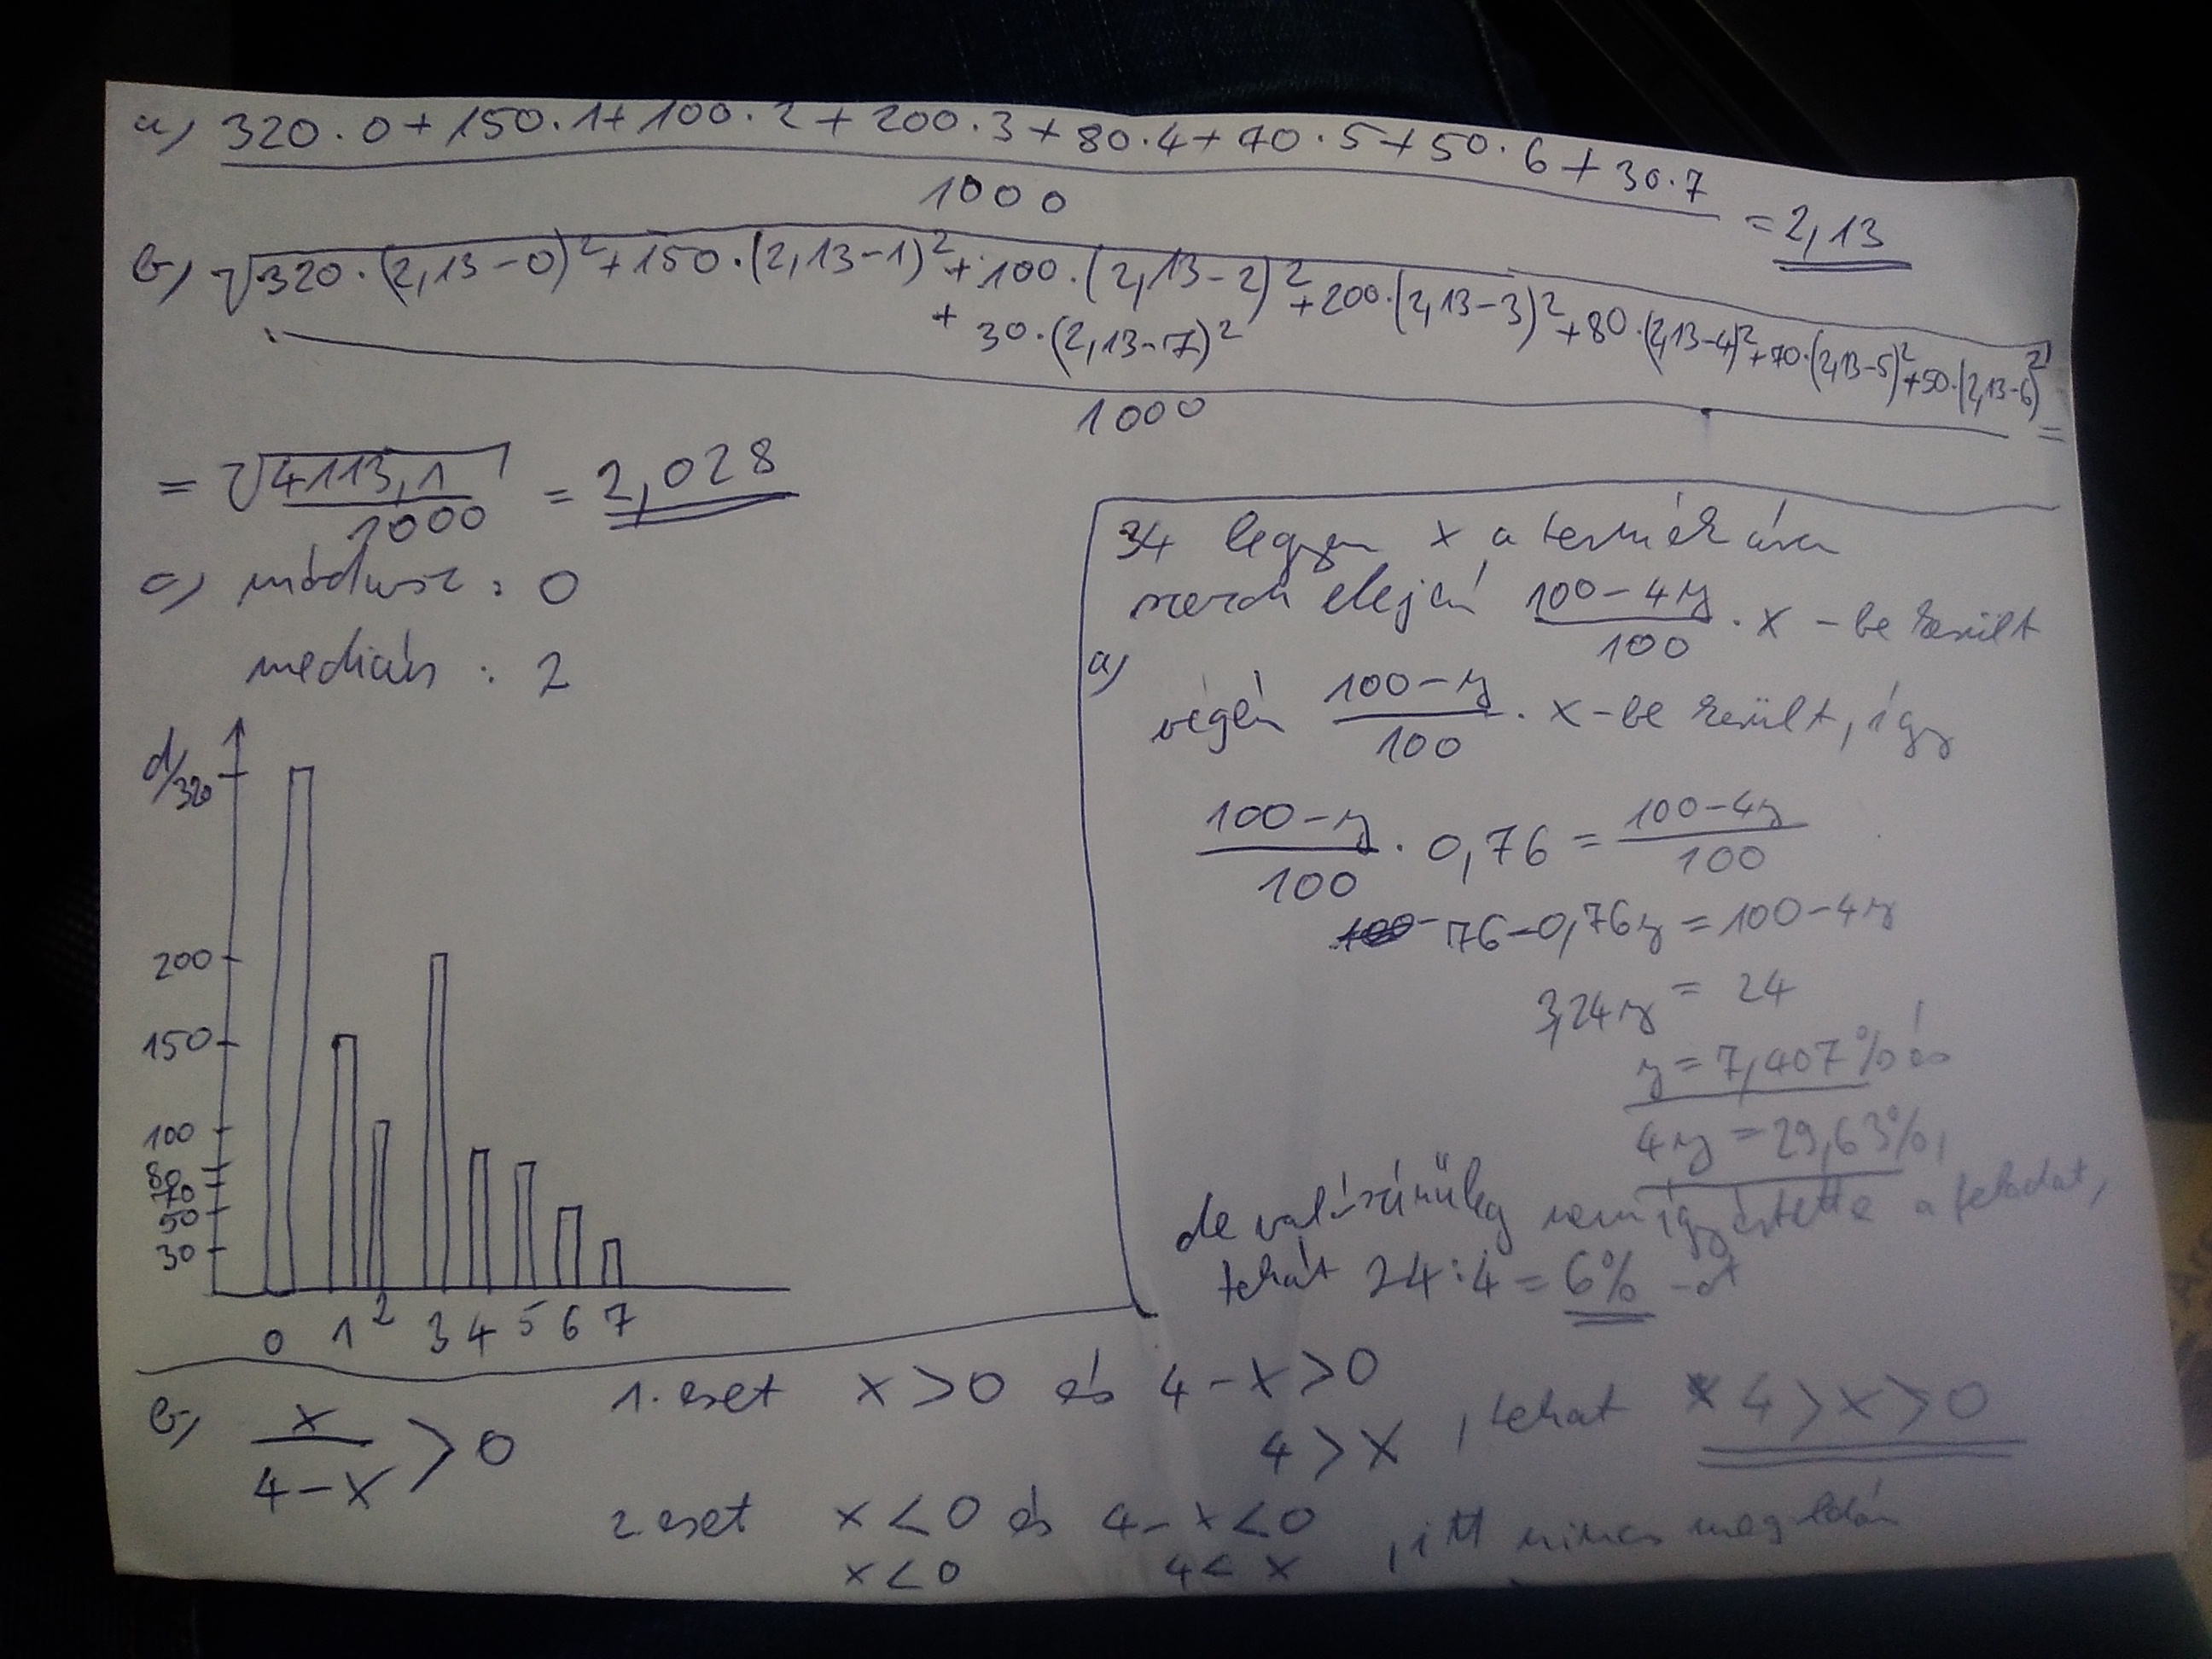 a) (320·0+150·1+100·2+200·3+80·4+70·5+50·6+30·7)/1000 = 2,13
b) √(320·(2,13-0)²+150·(2,13-1)²+100·(2,13-2)²+200·(2,13-3)²+80·(2,13-4)²+70·(2,13-5)²+50·(2,13-6)²
+ 30·(2,13-7)²
1000 =
= √(4113,1/1000) = 2,028
c) módusz: 0
medián: 2
d/
320
200
150
100
80
70
50
30
0 1 2 3 4 5 6 7
34 legyen x a termék ára
elején (100-4y)/100 · x -be került
a)
végén (100-y)/100 · x-be került, így
(100-y)/100 · 0,76 = (100-4y)/100
76-0,76y = 100-4y
3,24y = 24
y = 7,407% és
4y = 29,63%,
de valószínűleg nem így értette a feladat,
tehát 24:4 = 6% -ot
b) x/(4-x) > 0
1. eset x>0 és 4-x>0
4>x, tehat 4>x>0
2 eset x<0 és 4-x<0
x<0 4<x, itt nincs megoldás